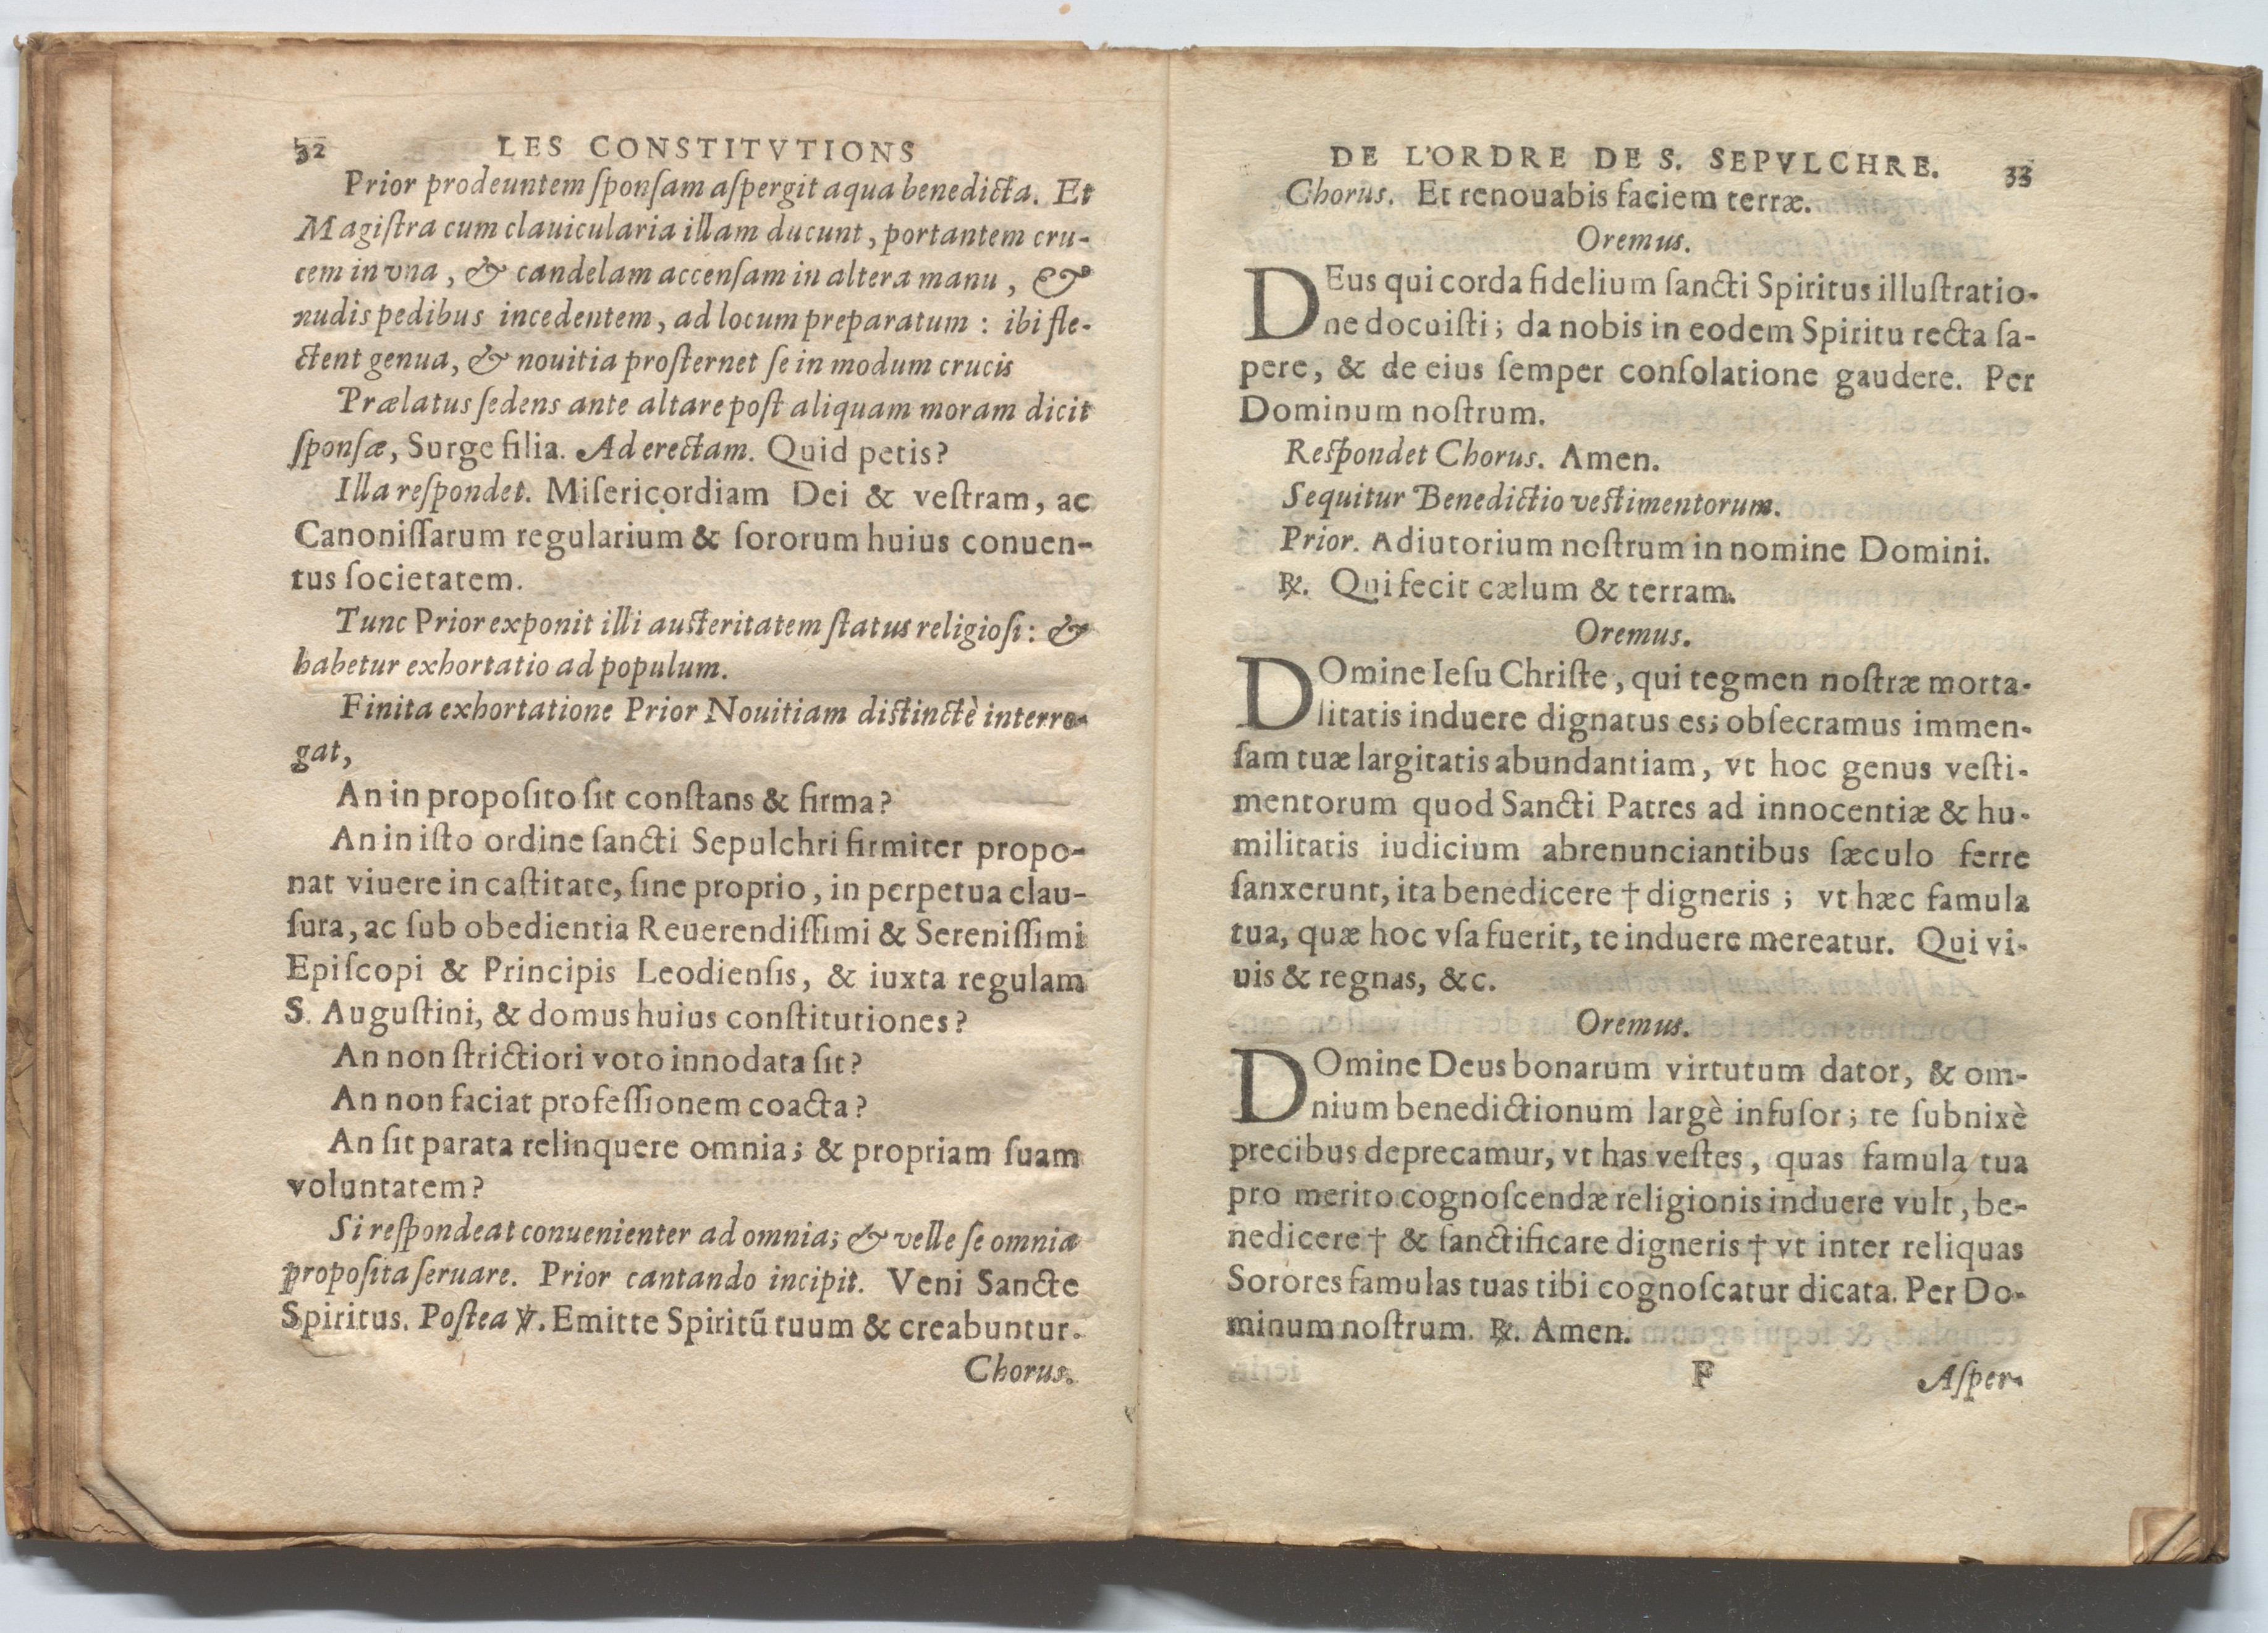 32 LES CONSTITVTIONS
Prior prodeuntem ſponſam aſpergit aqua benedicta. Et
Magiſtra cum clauicularia illam ducunt, portantem cru-
cem in vna, & candelam accenſam in altera manu, &
nudis pedibus incedentem, ad locum preparatum : ibi fle-
ctent genua, & nouitia proſternet ſe in modum crucis
Prælatus ſedens ante altare poſt aliquam moram dicit
ſponſæ, Surge filia. Ad erectam. Quid petis?
Illa reſpondet. Miſericordiam Dei & veſtram, ac
Canoniſſarum regularium & ſororum huius conuen-
tus ſocietatem.
Tunc Prior exponit illi auſteritatem ſtatus religioſi: &
habetur exhortatio ad populum.
Finita exhortatione Prior Nouitiam diſtinctè interro-
gat,
An in propoſito ſit conſtans & firma?
An in iſto ordine ſancti Sepulchri firmiter propo-
nat viuere in caſtitate, ſine proprio, in perpetua clau-
ſura, ac ſub obedientia Reuerendiſſimi & Sereniſſimi
Epiſcopi & Principis Leodienſis, & iuxta regulam
S. Auguſtini, & domus huius conſtitutiones?
An non ſtrictiori voto innodata ſit?
An non faciat profeſſionem coacta?
An ſit parata relinquere omnia; & propriam ſuam
voluntatem?
Si reſpondeat conuenienter ad omnia; & velle ſe omnia
propoſita ſeruare. Prior cantando incipit. Veni Sancte
Spiritus. Poſtea ℣. Emitte Spiritũ tuum & creabuntur.
Chorus.
DE L'ORDRE DE S. SEPVLCHRE. 33
Chorus. Et renouabis faciem terræ.
Oremus.
DEus qui corda fidelium ſancti Spiritus illuſtratio-
ne docuiſti; da nobis in eodem Spiritu recta ſa-
pere, & de eius ſemper conſolatione gaudere. Per
Dominum noſtrum.
Reſpondet Chorus. Amen.
Sequitur Benedictio veſtimentorum.
Prior. Adiutorium noſtrum in nomine Domini.
℟. Qui fecit cælum & terram.
Oremus.
DOmine Ieſu Chriſte, qui tegmen noſtræ morta-
litatis induere dignatus es; obſecramus immen-
ſam tuæ largitatis abundantiam, vt hoc genus veſti-
mentorum quod Sancti Patres ad innocentiæ & hu-
militatis iudicium abrenunciantibus ſæculo ferre
ſanxerunt, ita benedicere † digneris ; vt hæc famula
tua, quæ hoc vſa fuerit, te induere mereatur. Qui vi-
uis & regnas, &c.
Oremus.
DOmine Deus bonarum virtutum dator, & om-
nium benedictionum largè infuſor; te ſubnixè
precibus deprecamur, vt has veſtes, quas famula tua
pro merito cognoſcendæ religionis induere vult, be-
nedicere † & ſanctificare digneris † vt inter reliquas
Sorores famulas tuas tibi cognoſcatur dicata. Per Do-
minum noſtrum. ℟. Amen.
F Aſper-